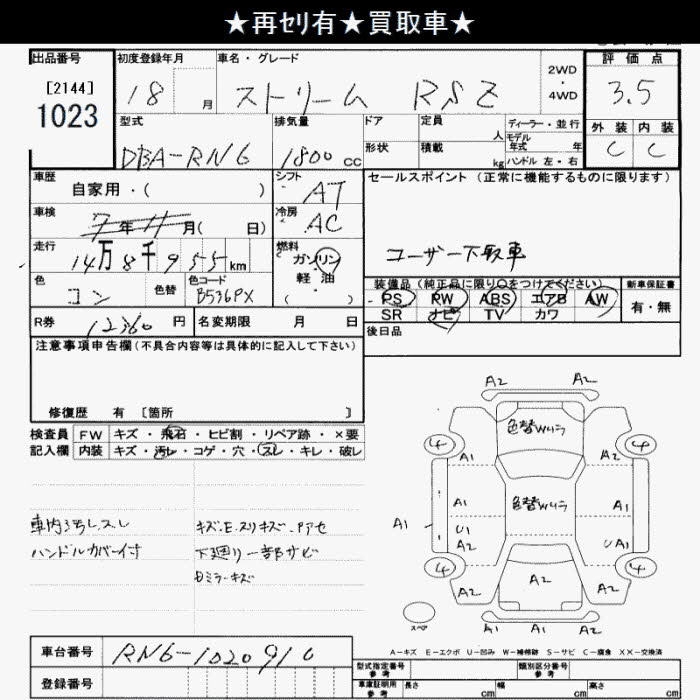 ★再ｾﾘ有★買取車★
出品番号 初度登録年月 車名・グレード 2WD・4WD 評価点
[2144]
1023
18 月 ストリーム RSZ 3.5
型式 排気量 ドア 定員 人 ディーラー・並行 外装 内装
モデル年式 年
DBA-RN6 1800 cc 形状 積載 kg ハンドル 左・右 C C
車歴 自家用・( ) シフト AT セールスポイント (正常に機能するものに限ります)
車検 7年11月( 日) 冷房 AC
走行 14万8千955km 燃料 ガソリン 軽・油 ( )
ユーザー下取車
色 コン 色替 色コード B536PX
装備品(純正品に限り○をつけてください) 新車保証書
PS PW ABS エアB AW 有・無
SR ナビ TV カワ
R券 12360円 名変期限 月 日
後日品
注意事項申告欄(不具合内容等は具体的に記入して下さい)
修復歴 有 [箇所 ]
検査員 FW キズ・飛石・ヒビ割・リペア跡・×要
記入欄 内装 キズ・汚レ・コゲ・穴・スレ・キレ・破レ
車内ヨゴレ スレ
ハンドルカバー付
キズ.E.スリキズ
下廻り一部サビ
ミラーキズ
A2 A2
色替Wムラ
4 4
A1 A2
色替Wムラ
A1 A1 A1
U1 A2 UA1
4 4
A2
A2 A2
A2
スペア
A-キズ E-エクボ U-凹み W-補修跡 S-サビ C-腐食 XX-交換済
車台番号 RN6-1020910
登録番号
型式指定番号 参考 類別区分番号 参考
車庫証明用 参考 長さ cm 幅 cm 高さ cm